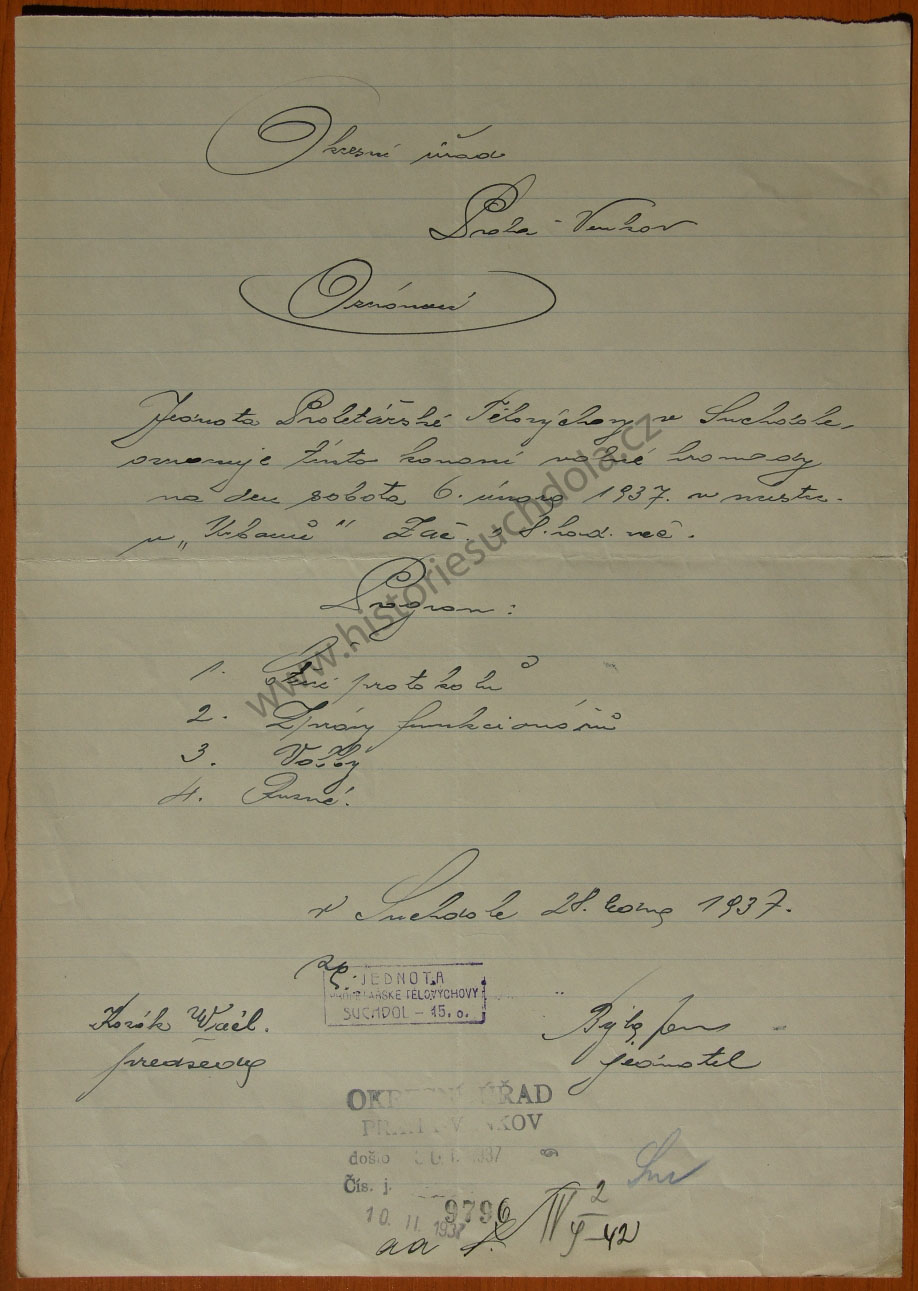 Okresní úřad
Praha - Venkov
Oznámení
Jednota Proletářské Tělovýchovy v Suchdole,
oznamuje tímto konaní valné hromady
na den sobota 6. února 1937. v místn.
u „Urbanů“ Zač. v 8. hod. več.
Program:
1. Čtení protokolů
2. Zprávy funkcionářů
3. Volby
4. Různé.
v Suchdole 28. ledna 1937.
JEDNOTA
PROLETÁŘSKÉ TĚLOVÝCHOVY
SUCHDOL – 15. o.
Kozák Václ.
předseda
jednatel
OKRESNÍ ÚŘAD
PRAHA-VENKOV
došlo 30. I. 1937
Čís. j.
9796
10. II. 1937
aa
IV 2
www.historiesuchdola.cz